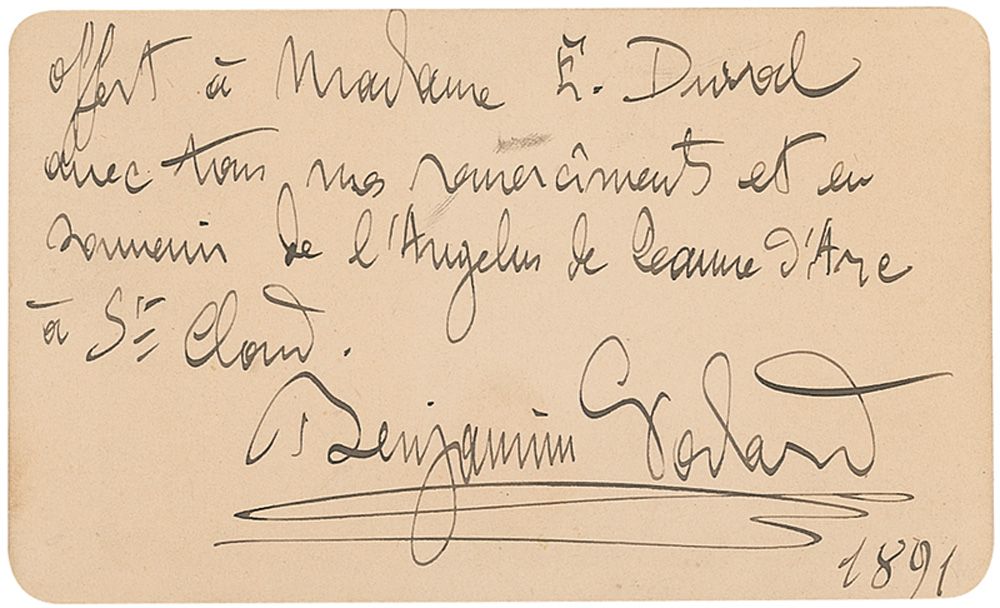 offert à Madame E. Duval
avec tous mes remercîments et en
souvenir de l'Angelus de Jeanne d'Arc
à St Cloud.
Benjamin Godard
1891